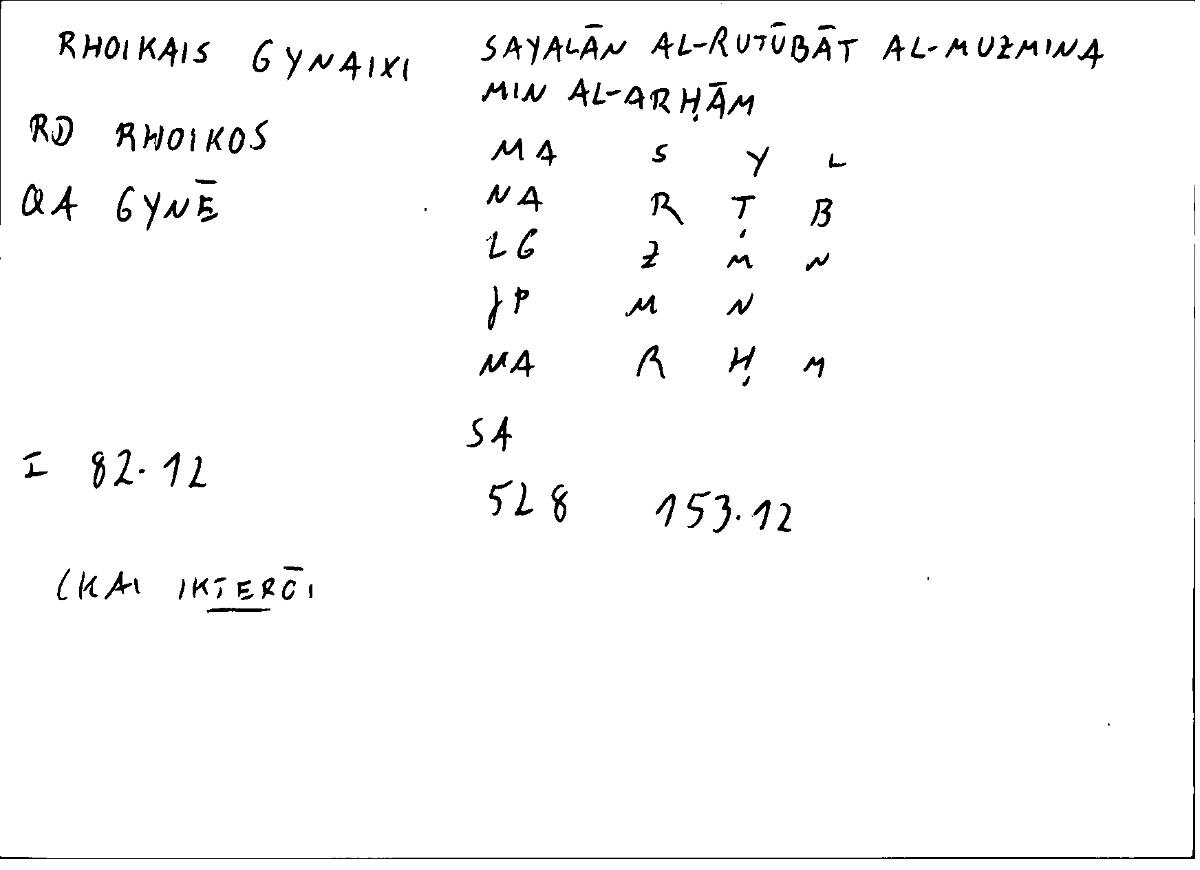 RHOIKAIS GYNAIXI
RD RHOIKOS
QA GYNĒ
I 82.12
(KAI IKTERŌI
SAYALĀN AL-RUTŪBĀT AL-MUZMINA
MIN AL-ARḤĀM
MA S Y L
NA R Ṭ B
LG Z M N
JP M N
MA R Ḥ M
SA
528 153.12